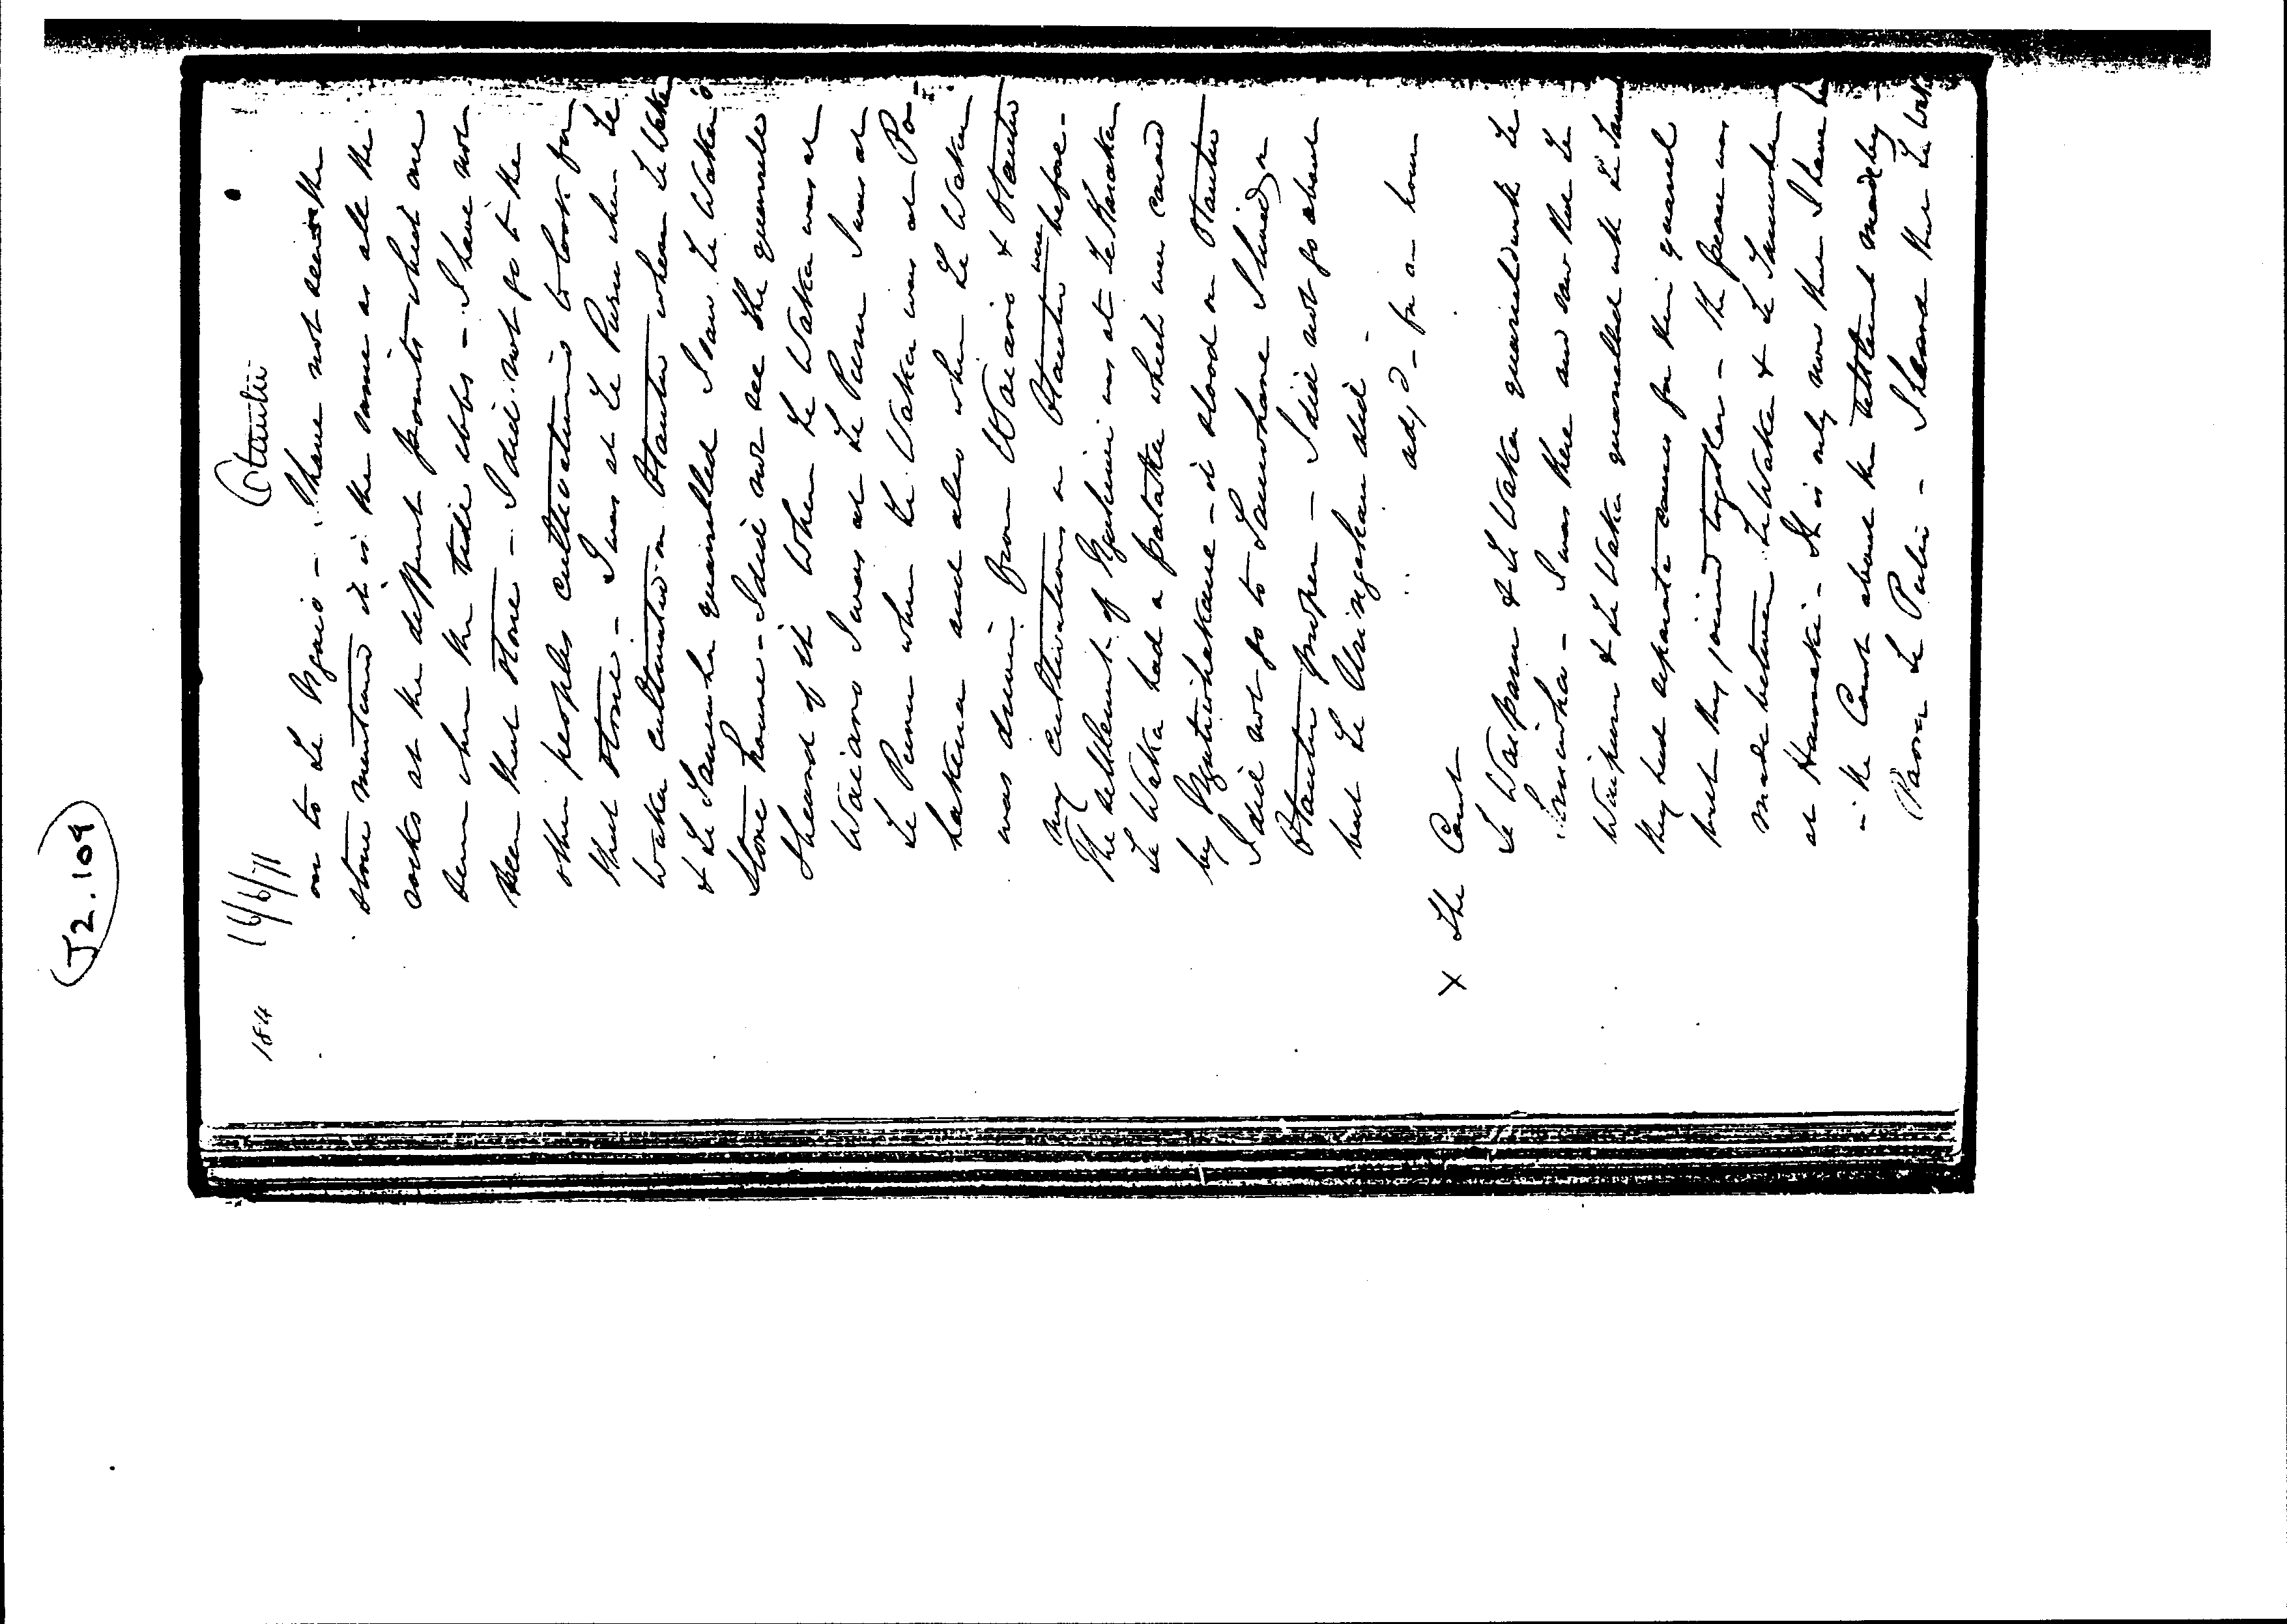 J2.109
184 16/6/71 Otautu
on to Te Ngaio - I have not seen the
stone mentioned it is the same as all the
rocks at the different points which are
seen when the tide ebbs - I have not
seen that stone - I did not go to the
other peoples cultivations to look for
that stone. - I was at Te Puru when Te
Waka cultivated on Otautu when Te Waka
& Te Tauwha quarrelled I saw Te Waka's
store house - I did not see the quarrel
I heard of it when Te Waka was at
Waiaro I was at Te Puru I was at
Te Puru when Te Waka was at Po-
hakena and also when Te Waka
was driven from Waiaro & Otautu
my cultivations on Otautu were before -
The settlement of Ngatihemi was at Te Karaka
Te Waka had a pataka which was carved
by Ngatiwhakaue - it stood on Otautu
I did not go to Tauwhare I lived on
Otautu proper - I did not go about
but Te Aringahau did -
adjd - for an hour
x The Court
Te Waipuru & Te Waka quarrelled with Te
Tauwha - I was there and saw that Te
Waipuru & Te Waka quarrelled with Te Tauw
they had separate causes for their quarrel
but they joined together - the peace was
made between Te Waka & Te Tauwha
at Hauraki - It is only now that I have he
in the Court about the settlement made by
Paora Te Putu - I heard that Te Waka